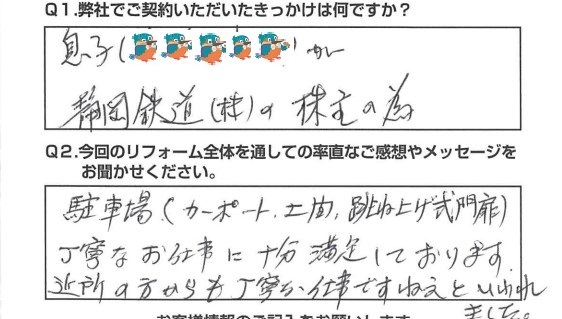 Q1.弊社でご契約いただいたきっかけは何ですか?
息子( )が
静岡鉄道(株)の株主の為
Q2.今回のリフォーム全体を通しての率直なご感想やメッセージを
お聞かせください。
駐車場(カーポート、土間、跳ね上げ式門扉)
丁寧なお仕事に十分満足しております。
近所の方からも丁寧な仕事ですねえといわれ
ました。
お客様情報のご記入をお願いします